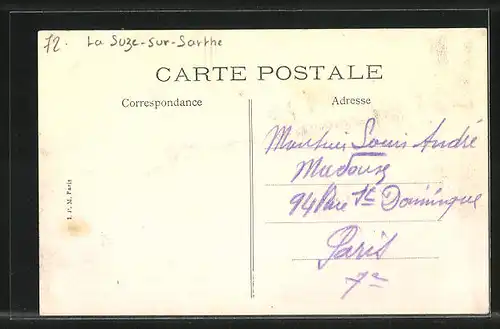 72. La Suze-sur-Sarthe
CARTE POSTALE
Correspondance
Adresse
Monsieur Louis André
94 Rue St Dominique
Paris
7e
I. P. M. Paris